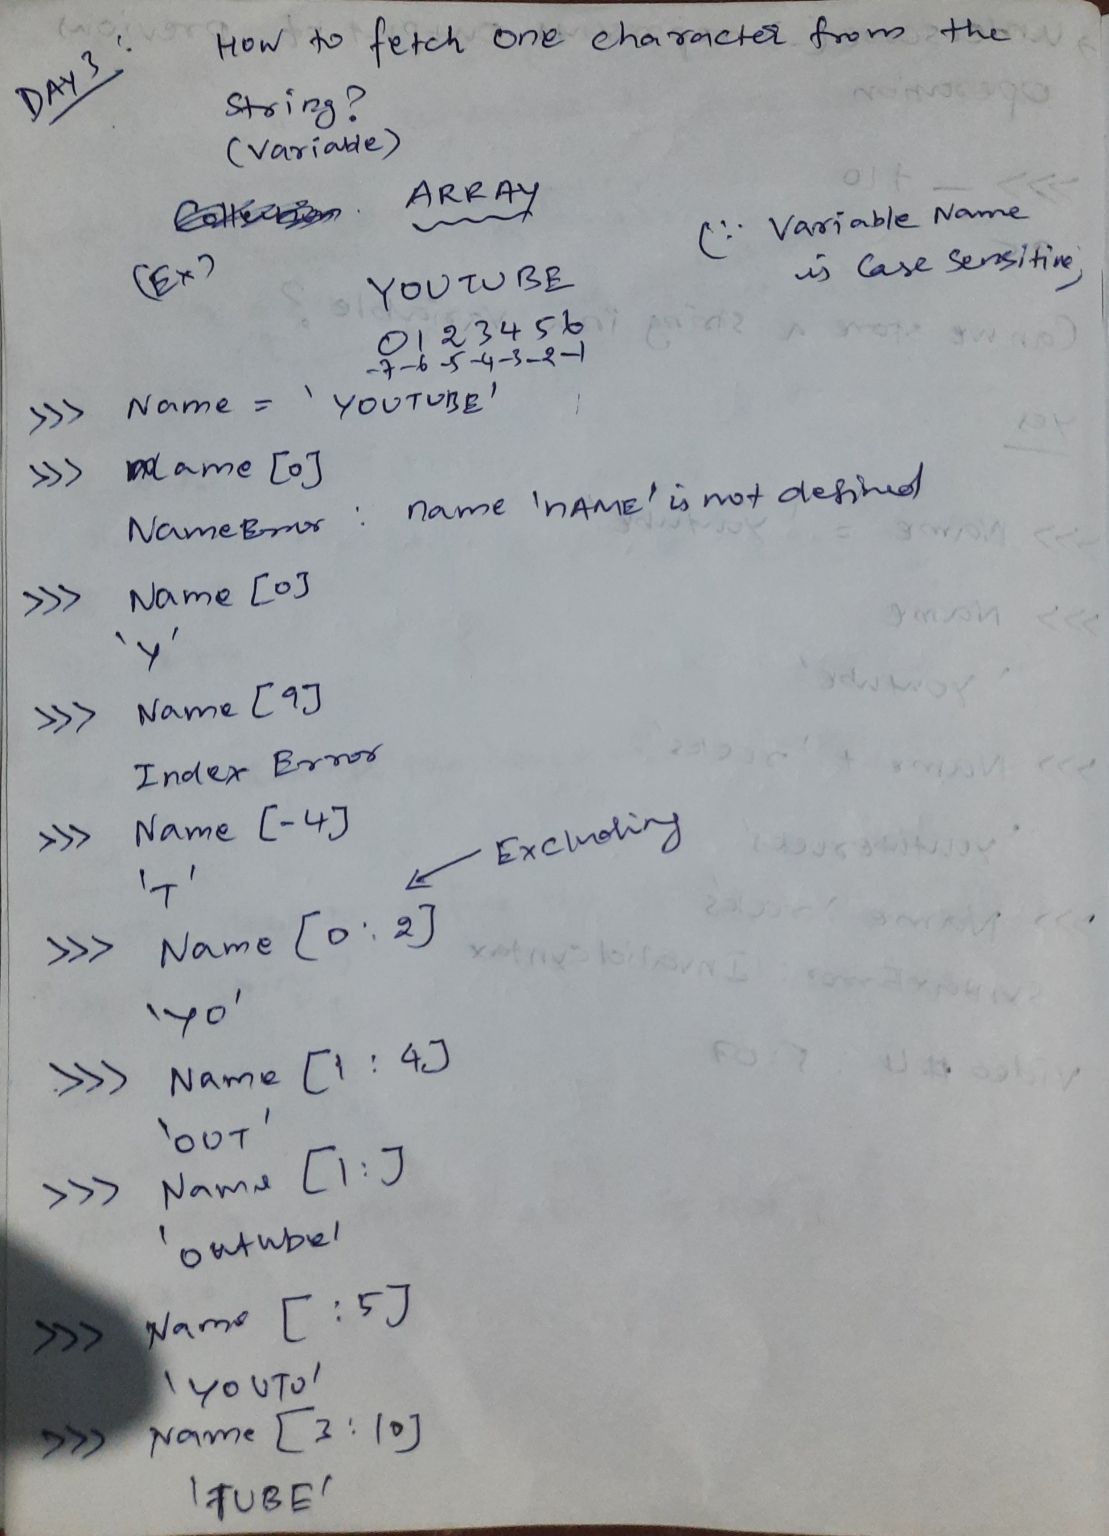 DAY 3 : How to fetch one character from the
String?
(Variable)
ARRAY
(∵ Variable Name
is Case Sensitive)
(Ex)
YOUTUBE
0 1 2 3 4 5 6
-7 -6 -5 -4 -3 -2 -1
>>> Name = 'YOUTUBE'
>>> name [0]
NameError : name 'nAME' is not defined
>>> Name [0]
'Y'
>>> Name [9]
Index Error
>>> Name [-4]
'T'
Excluding
>>> Name [0 : 2]
'YO'
>>> Name [1 : 4]
'OUT'
>>> Name [1:]
'outube'
>>> Name [:5]
'YOUTU'
>>> Name [3:10]
'TUBE'